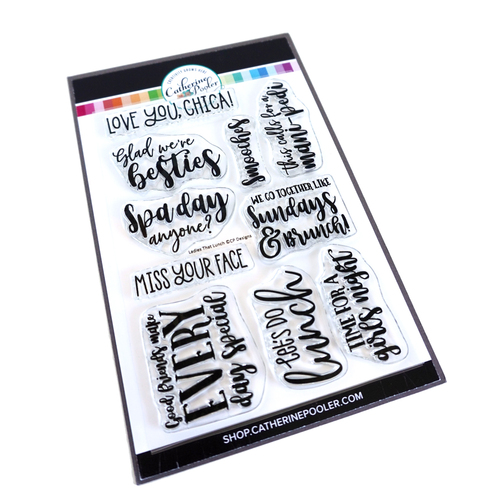 Catherine
Pooler
LOVE YOU, CHICA!
Glad we're
besties
Smooches
this calls for a
mani-pedi
Spa day
anyone?
WE GO TOGETHER LIKE
Sundays
& Brunch!
Ladies That Lunch ©CP Designs
MISS YOUR FACE
Good friends make
EVERY
day special
let's do
lunch
TIME FOR A
girls night
SHOP.CATHERINEPOOLER.COM